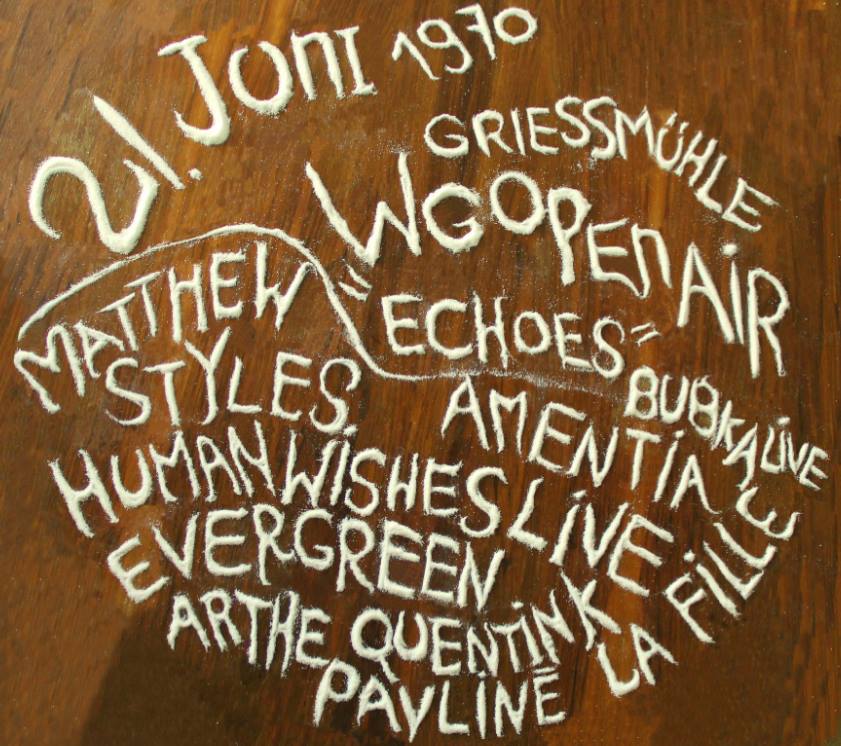 21. Juni 1970
GRIESSMÜHLE
WG OPEN AiR
"ECHOES"
MATTHEW
STYLES
AMENTiA
BUBKA LiVE
HUMAN WISHES LiVE
EVERGREEN
ARTHE QUENTiN K
LA FiLLE
PAVLiNE